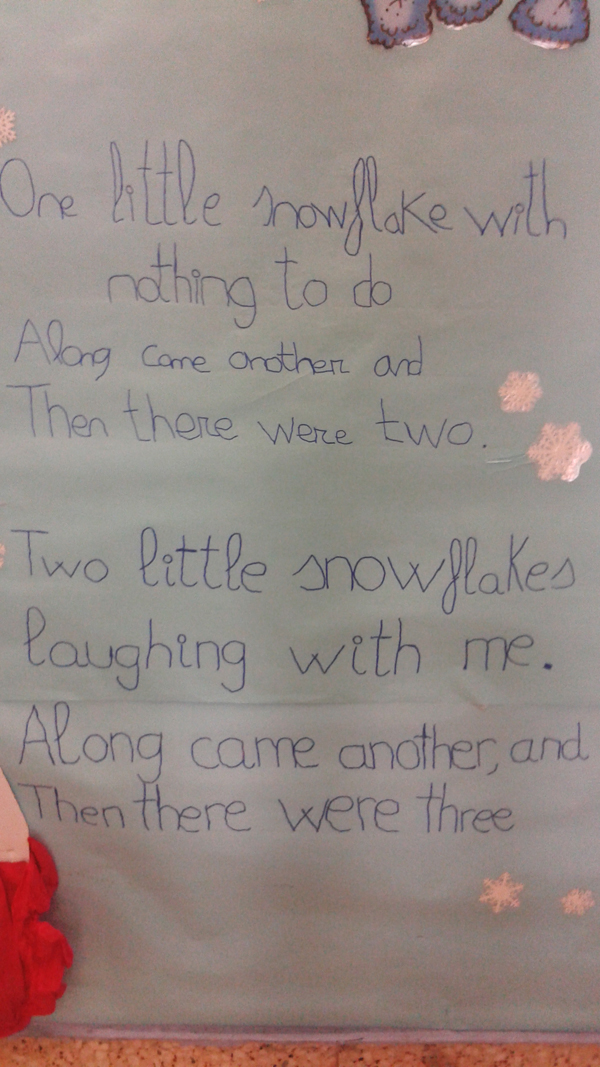 One little snowflake with
nothing to do
Along came another and
Then there were two.
Two little snowflakes
laughing with me.
Along came another, and
Then there were three